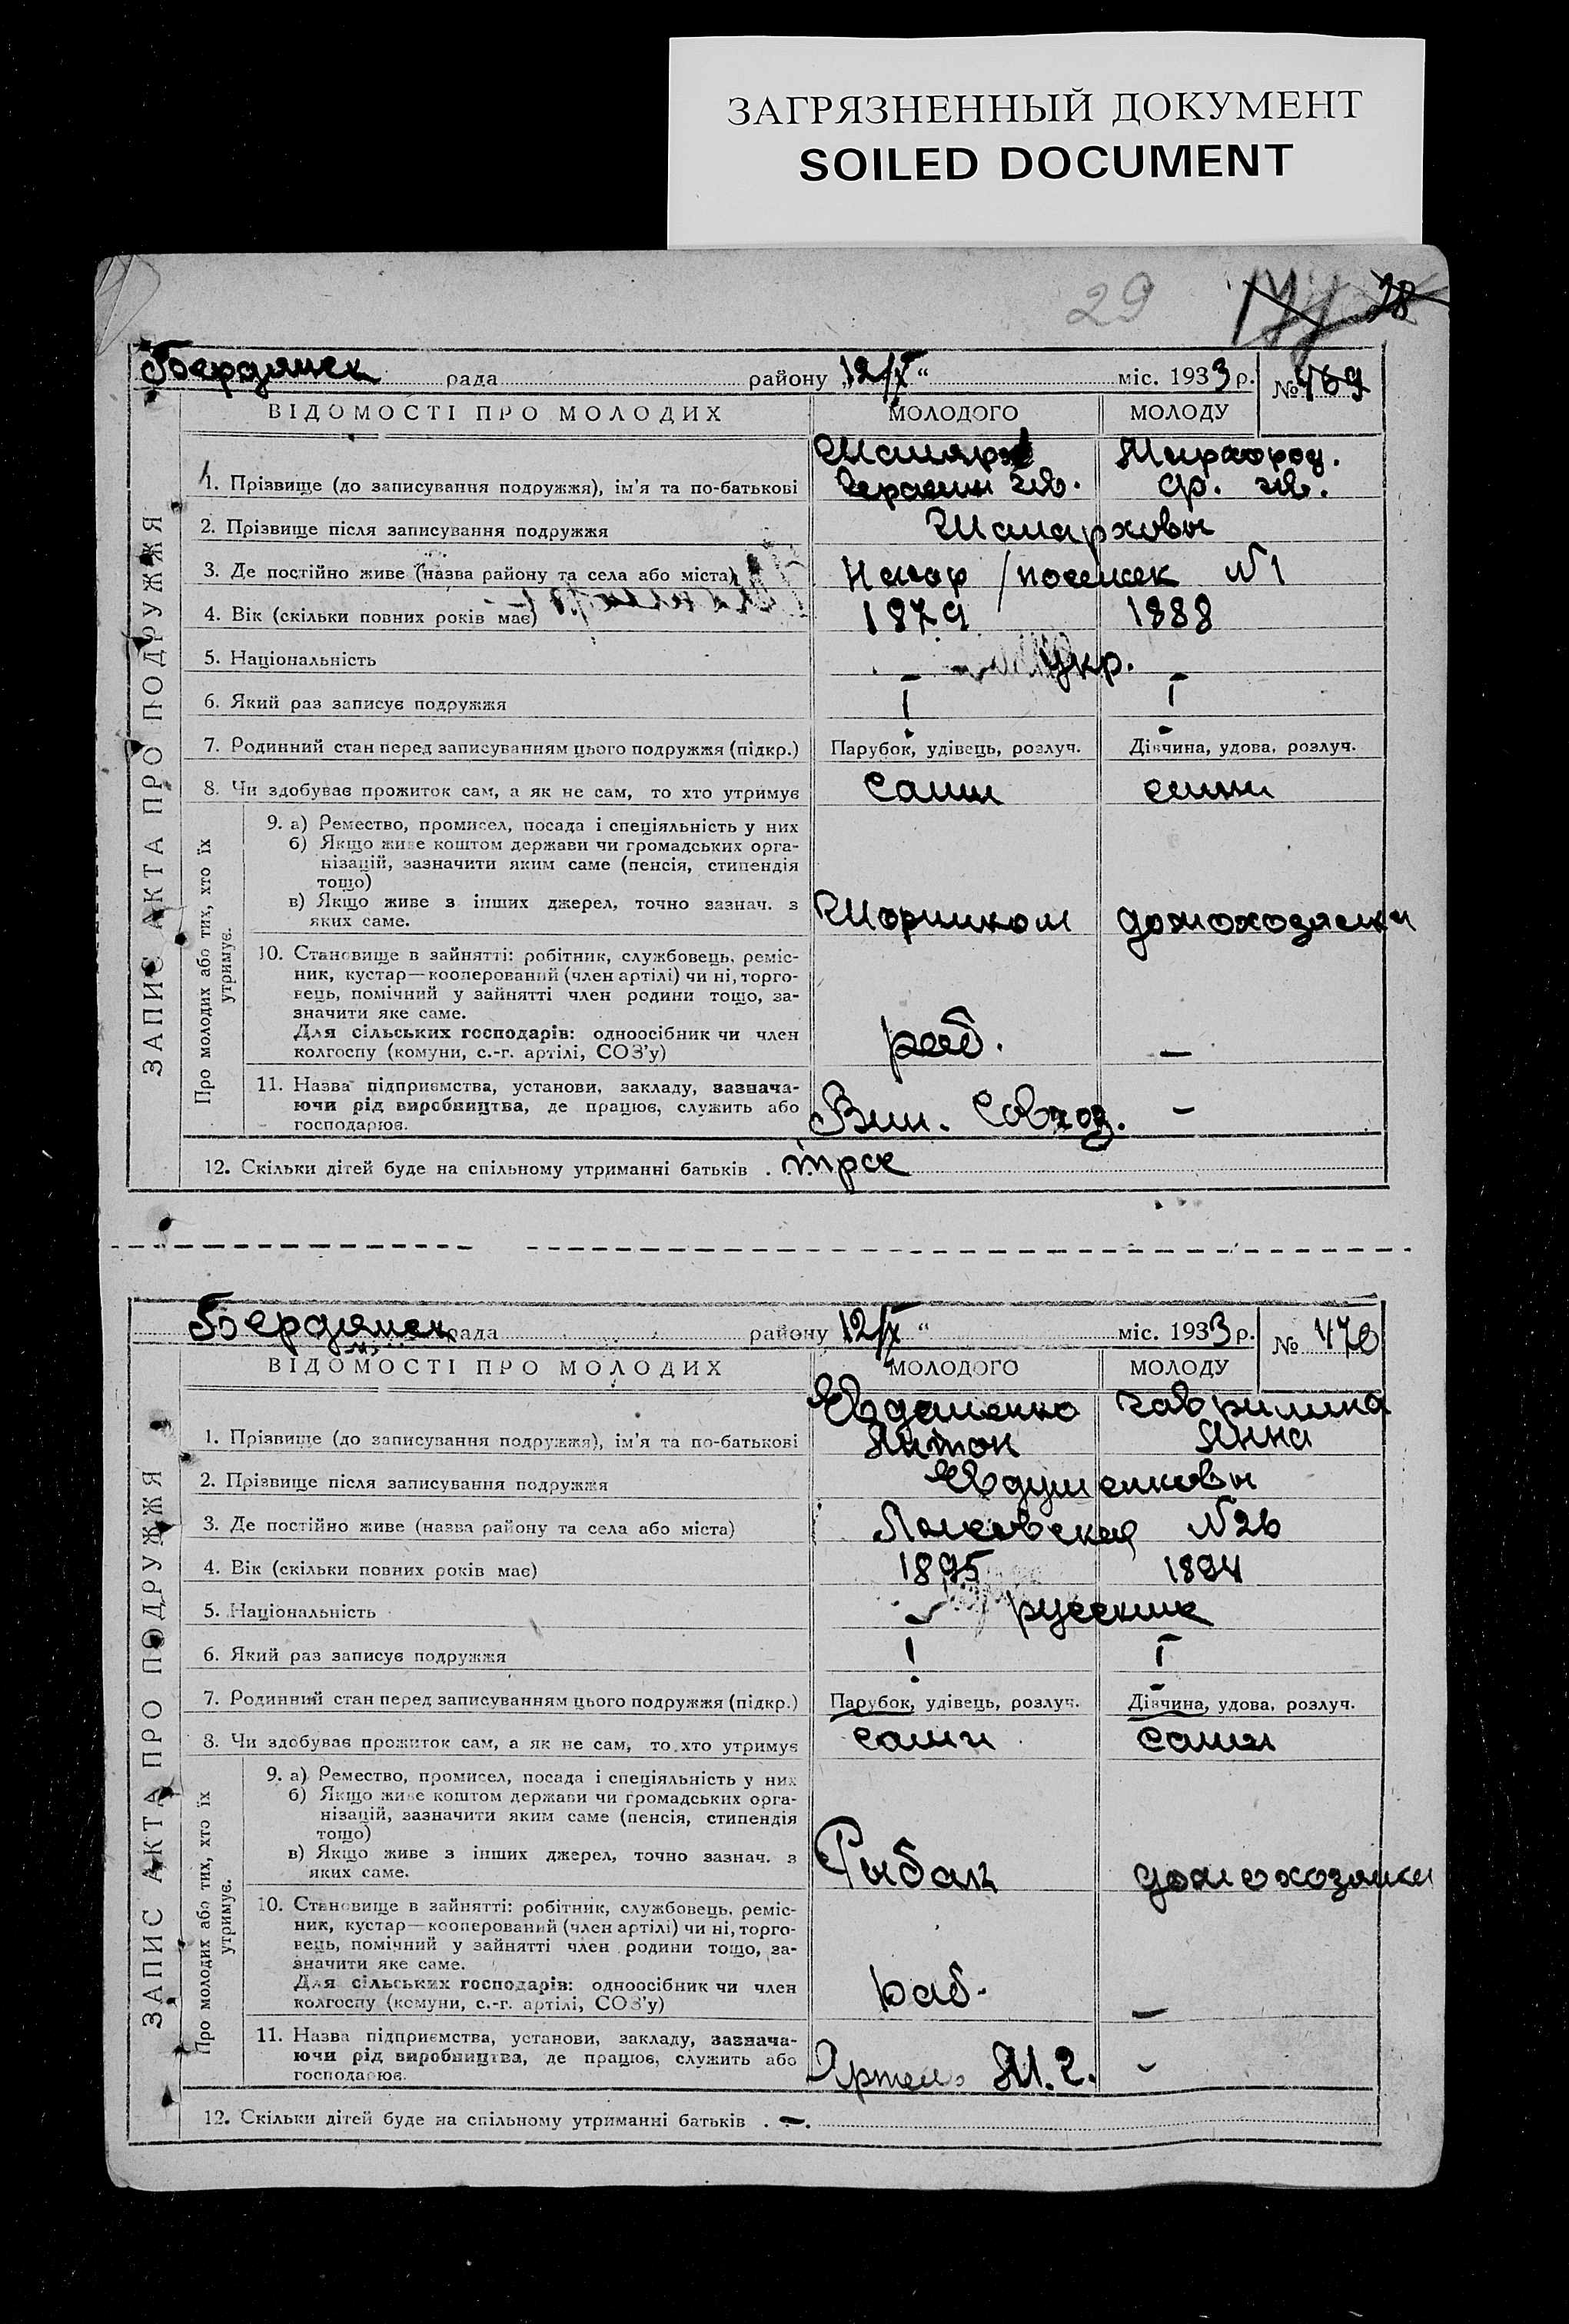 ЗАГРЯЗНЕННЫЙ ДОКУМЕНТ
SOILED DOCUMENT
29 28
Бердянск рада району „12/X“ міс. 1933 р. № 469
ВІДОМОСТІ ПРО МОЛОДИХ МОЛОДОГО МОЛОДУ
ЗАПИС АКТА ПРО ПОДРУЖЖЯ
1. Прізвище (до записування подружжя), ім'я та по-батькові
Мирхород.
Герасим Ив. Ив.
2. Прізвище після записування подружжя
3. Де постійно живе (назва району та села або міста) Нагор / поселок №1
4. Вік (скільки повних років має) 1879 1888
5. Національність укр.
6. Який раз записує подружжя I I
7. Родинний стан перед записуванням цього подружжя (підкр.) Парубок, удівець, розлуч. Дівчина, удова, розлуч.
8. Чи здобував прожиток сам, а як не сам, то хто утримує сами сами
Про молодих або тих, хто їх утримує.
9. а) Ремество, промисел, посада і спеціяльність у них
б) Якщо живе коштом держави чи громадських орга-
нізацій, зазначити яким саме (пенсія, стипендія
тощо)
в) Якщо живе з інших джерел, точно зазнач. з
яких саме.
домохозяйки
10. Становище в зайнятті: робітник, службовець, реміс-
ник, кустар—кооперований (член артілі) чи ні, торго-
вець, помічний у зайнятті член родини тощо, за-
значити яке саме.
Для сільських господарів: одноосібник чи член
колгоспу (комуни, с.-г. артілі, СОЗ'у) раб. —
11. Назва підприємства, установи, закладу, зазнача-
ючи рід виробництва, де працює, служить або
господарює.
Вин. Совхоз. —
12. Скільки дітей буде на спільному утриманні батьків . трое
Бердянск рада району 12/X “ міс. 1933 р. № 470
ВІДОМОСТІ ПРО МОЛОДИХ МОЛОДОГО МОЛОДУ
ЗАПИС АКТА ПРО ПОДРУЖЖЯ
Гаврилина
1. Прізвище (до записування подружжя), ім'я та по-батькові Антон Анна
2. Прізвище після записування подружжя
3. Де постійно живе (назва району та села або міста) №26
4. Вік (скільки повних років має) 1895 1894
5. Національність русские
6. Який раз записує подружжя I I
7. Родинний стан перед записуванням цього подружжя (підкр.) Парубок, удівець, розлуч. Дівчина, удова, розлуч.
8. Чи здобував прожиток сам, а як не сам, то хто утримує сами сами
Про молодих або тих, хто їх утримує.
9. а) Ремество, промисел, посада і спеціяльність у них
б) Якщо живе коштом держави чи громадських орга-
нізацій, зазначити яким саме (пенсія, стипендія
тощо)
в) Якщо живе з інших джерел, точно зазнач. з
яких саме.
Рыбак домохозяйки
10. Становище в зайнятті: робітник, службовець, реміс-
ник, кустар—кооперований (член артілі) чи ні, торго-
вець, помічний у зайнятті член родини тощо, за-
значити яке саме.
Для сільських господарів: одноосібник чи член
колгоспу (комуни, с.-г. артілі, СОЗ'у) раб. —
11. Назва підприємства, установи, закладу, зазнача-
ючи рід виробництва, де працює, служить або
господарює.
Артель —
12. Скільки дітей буде на спільному утриманні батьків . —.